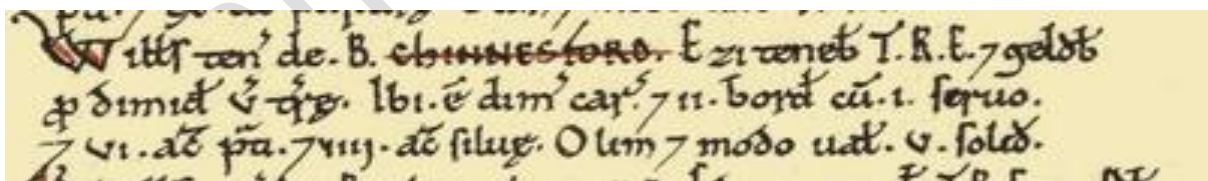 Willſ ten' de. B. ChINNESFORD. Ezi teneb̄ T.R.E. ⁊ geldb̄
ꝓ dimid v̓ træ. Ibi. ē dim' car'. ⁊ ii. bord cū. i. ſeruo.
⁊ vi. ac̄ p̄a. ⁊ viii. ac̄ ſiluę. Olim ⁊ modo ual. v. ſolid.